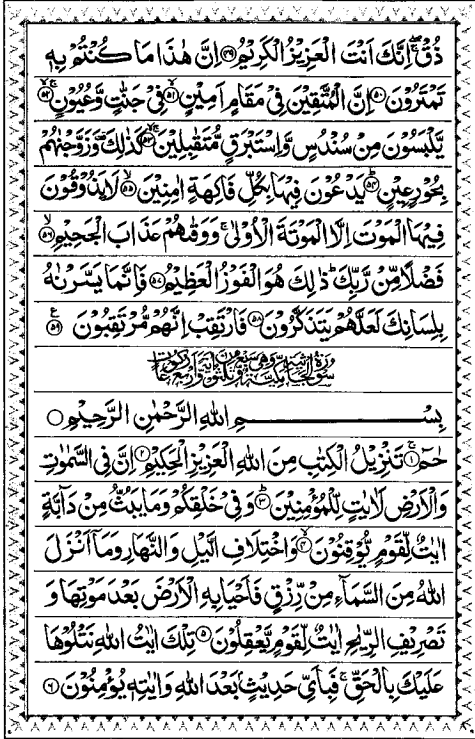 ذُقْ ۚۙ اِنَّكَ اَنْتَ الْعَزِيْزُ الْكَرِيْمُ ﴿۴۹﴾ اِنَّ هٰذَا مَا كُنْتُمْ بِهٖ
تَمْتَرُوْنَ ﴿۵۰﴾ اِنَّ الْمُتَّقِيْنَ فِيْ مَقَامٍ اَمِيْنٍ ﴿۵۱﴾ۙ فِيْ جَنّٰتٍ وَّعُيُوْنٍ ﴿۵۲﴾ۚۙ
يَّلْبَسُوْنَ مِنْ سُنْدُسٍ وَّاِسْتَبْرَقٍ مُّتَقٰبِلِيْنَ ﴿۵۳﴾ۚۙ كَذٰلِكَ ۫ وَزَوَّجْنٰهُمْ
بِحُوْرٍ عِيْنٍ ﴿۵۴﴾ؕ يَدْعُوْنَ فِيْهَا بِكُلِّ فَاكِهَةٍ اٰمِنِيْنَ ﴿۵۵﴾ۙ لَا يَذُوْقُوْنَ
فِيْهَا الْمَوْتَ اِلَّا الْمَوْتَةَ الْاُوْلٰى ۚ وَوَقٰىهُمْ عَذَابَ الْجَحِيْمِ ﴿۵۶﴾ۙ
فَضْلًا مِّنْ رَّبِّكَ ؕ ذٰلِكَ هُوَ الْفَوْزُ الْعَظِيْمُ ﴿۵۷﴾ فَاِنَّمَا يَسَّرْنٰهُ
بِلِسَانِكَ لَعَلَّهُمْ يَتَذَكَّرُوْنَ ﴿۵۸﴾ فَارْتَقِبْ اِنَّهُمْ مُّرْتَقِبُوْنَ ﴿۵۹﴾ ع
سورة الجاثية مكية وهي سبع وثلثون اية واربع ركوعات
بِسْمِ اللهِ الرَّحْمٰنِ الرَّحِيْمِ
حٰمٓ ﴿۱﴾ۚ تَنْزِيْلُ الْكِتٰبِ مِنَ اللهِ الْعَزِيْزِ الْحَكِيْمِ ﴿۲﴾ اِنَّ فِي السَّمٰوٰتِ
وَالْاَرْضِ لَاٰيٰتٍ لِّلْمُؤْمِنِيْنَ ﴿۳﴾ؕ وَفِيْ خَلْقِكُمْ وَمَا يَبُثُّ مِنْ دَآبَّةٍ
اٰيٰتٌ لِّقَوْمٍ يُّوْقِنُوْنَ ﴿۴﴾ۙ وَاخْتِلَافِ الَّيْلِ وَالنَّهَارِ وَمَاۤ اَنْزَلَ
اللهُ مِنَ السَّمَآءِ مِنْ رِّزْقٍ فَاَحْيَا بِهِ الْاَرْضَ بَعْدَ مَوْتِهَا وَ
تَصْرِيْفِ الرِّيٰحِ اٰيٰتٌ لِّقَوْمٍ يَّعْقِلُوْنَ ﴿۵﴾ تِلْكَ اٰيٰتُ اللهِ نَتْلُوْهَا
عَلَيْكَ بِالْحَقِّ ۚ فَبِاَيِّ حَدِيْثٍۭ بَعْدَ اللهِ وَاٰيٰتِهٖ يُؤْمِنُوْنَ ﴿۶﴾